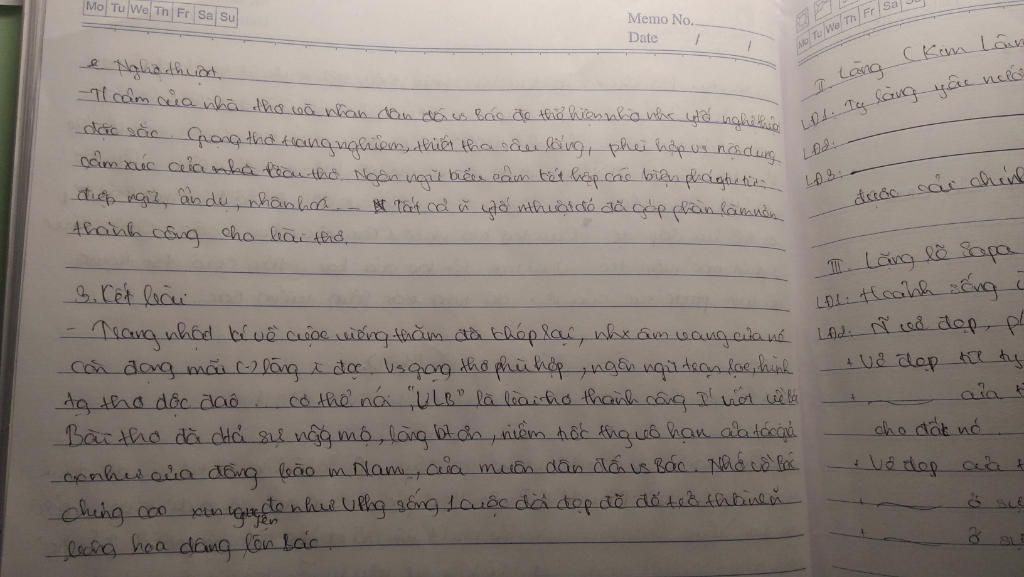 Mo Tu We Th Fr Sa Su
Memo No.
Date / /
e Nghệ thuật.
- T/cảm của nhà thơ và nhân dân đối vs Bác đc thể hiện nhờ yếu tố nghệ thuật
đặc sắc. Giọng thơ trang nghiêm, thiết tha sâu lắng, phù hợp vs nội dung
cảm xúc của nhà thơ. Ngôn ngữ biểu cảm kết hợp các biện pháp tu từ:
điệp ngữ, ẩn dụ, nhân hoá. Tất cả yếu tố đó đã góp phần làm nên
thành công cho bài thơ.
3. Kết bài
- Trang nhật kí về cuộc viếng thăm đã khép lại, như âm vang của nó
còn đọng mãi lòng đọc. Vs giọng thơ phù hợp, ngôn ngữ hình
tg thơ độc đáo ... có thể nói, "VLB" là bài thơ thành công viết về Bác
Bài thơ đã sự ngưỡng mộ, lòng bt ơn, niềm vô hạn của tác giả
cx như của đồng bào m Nam, của muôn dân đối vs Bác. Nhớ về Bác
chúng con xin nguyện như VPhg sống 1 cuộc đời đẹp đẽ để trở thành
bông hoa dâng lên Bác.
Mo Tu We Th Fr Sa Su
II. Làng (Kim Lân
LĐ1. Ty làng yêu nước
LĐ2:
LĐ3:
được cải chính
III. Lặng lẽ Sapa
LĐ1: Hoàn cảnh sống
LĐ2. Vẻ đẹp, ph
+ Vẻ đẹp từ
+ của
cho đất nc
+ Vẻ đẹp của
+ ở sự
+ ở sự